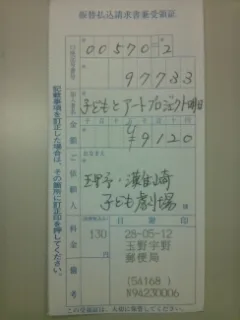 振替払込請求書兼受領証
00570=2
97733
子どもとアートプロジェクト明日
金額
¥9120
ご依頼人
玉野・灘崎
子ども劇場 様
料金
130
円
備考
日附印
28-05-12
玉野宇野
郵便局
(5A168 )
N94230006
記載事項を訂正した場合は、その箇所に訂正印を押してください。